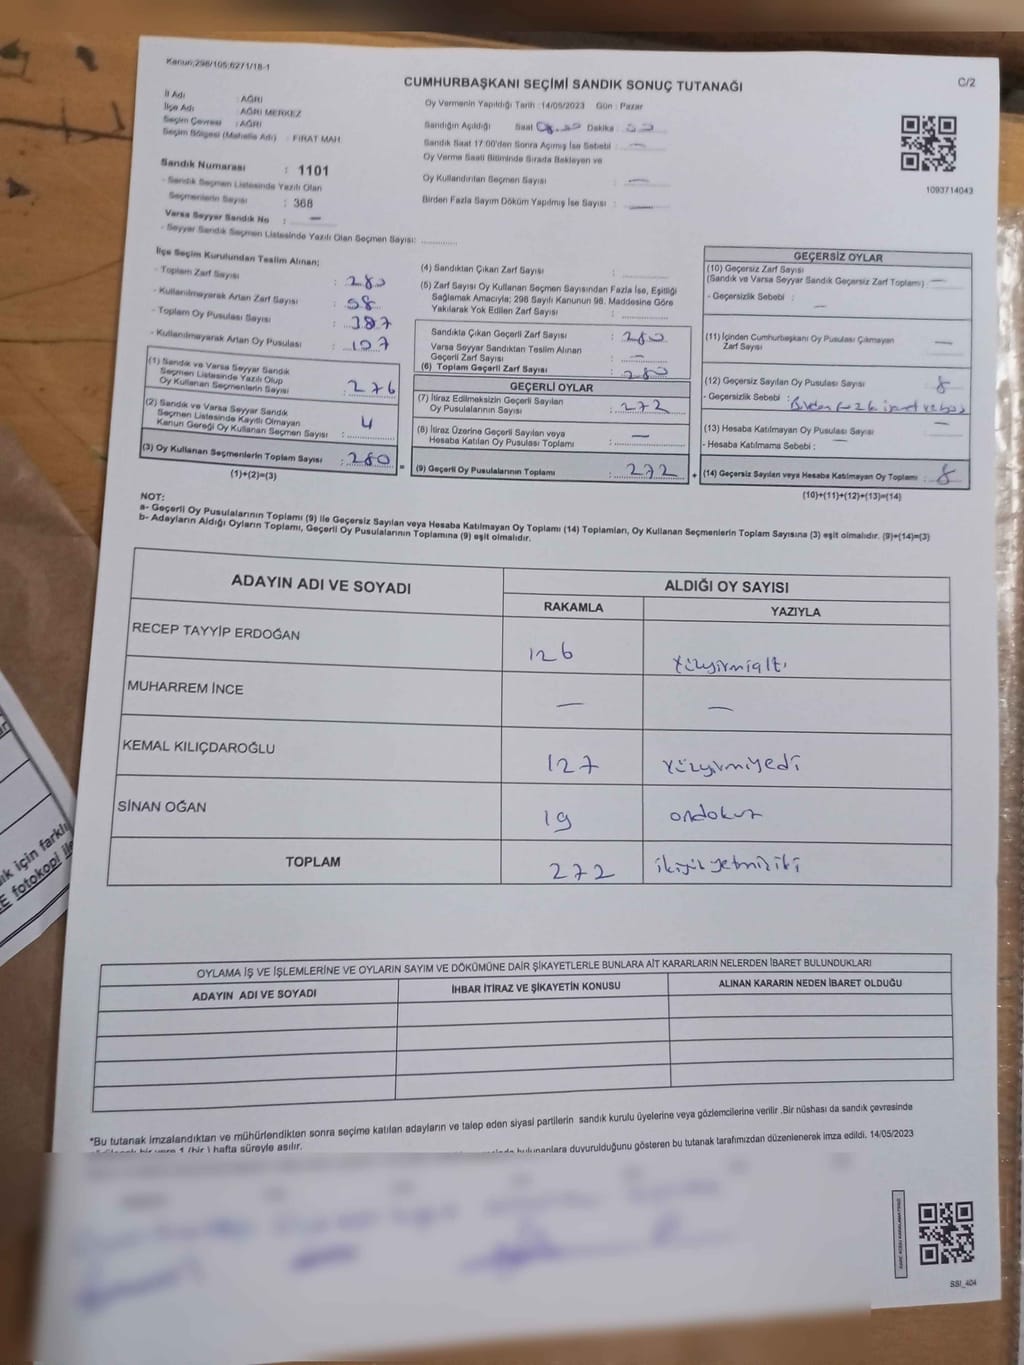 Kanun;298/105;6271/18-1
CUMHURBAŞKANI SEÇİMİ SANDIK SONUÇ TUTANAĞI
C/2
İl Adı : AĞRI
İlçe Adı : AĞRI MERKEZ
Seçim Çevresi : AĞRI
Seçim Bölgesi (Mahalle Adı) : FIRAT MAH.
Oy Vermenin Yapıldığı Tarih :14/05/2023 Gün : Pazar
Sandığın Açıldığı Saat Dakika :
Sandık Saat 17:00'den Sonra Açılmış İse Sebebi : —
Oy Verme Saati Bitiminde Sırada Bekleyen ve
Oy Kullandırılan Seçmen Sayısı : —
Birden Fazla Sayım Döküm Yapılmış İse Sayısı : —
1093714043
Sandık Numarası : 1101
- Sandık Seçmen Listesinde Yazılı Olan
Seçmenlerin Sayısı : 368
Varsa Seyyar Sandık No : —
- Seyyar Sandık Seçmen Listesinde Yazılı Olan Seçmen Sayısı: ............
İlçe Seçim Kurulundan Teslim Alınan;
- Toplam Zarf Sayısı :
- Kullanılmayarak Artan Zarf Sayısı :
- Toplam Oy Pusulası Sayısı : 387
- Kullanılmayarak Artan Oy Pusulası : 107
(1) Sandık ve Varsa Seyyar Sandık
Seçmen Listesinde Yazılı Olup
Oy Kullanan Seçmenlerin Sayısı : 276
(2) Sandık ve Varsa Seyyar Sandık
Seçmen Listesinde Kayıtlı Olmayan
Kanun Gereği Oy Kullanan Seçmen Sayısı : 4
(3) Oy Kullanan Seçmenlerin Toplam Sayısı : 280
(1)+(2)=(3)
(4) Sandıktan Çıkan Zarf Sayısı :
(5) Zarf Sayısı Oy Kullanan Seçmen Sayısından Fazla İse, Eşitliği
Sağlamak Amacıyla; 298 Sayılı Kanunun 98. Maddesine Göre
Yakılarak Yok Edilen Zarf Sayısı :
Sandıkta Çıkan Geçerli Zarf Sayısı : 280
Varsa Seyyar Sandıktan Teslim Alınan
Geçerli Zarf Sayısı : —
(6) Toplam Geçerli Zarf Sayısı : 280
GEÇERLİ OYLAR
(7) İtiraz Edilmeksizin Geçerli Sayılan
Oy Pusulalarının Sayısı : 272
(8) İtiraz Üzerine Geçerli Sayılan veya
Hesaba Katılan Oy Pusulası Toplamı : —
(9) Geçerli Oy Pusulalarının Toplamı : 272
GEÇERSİZ OYLAR
(10) Geçersiz Zarf Sayısı
(Sandık ve Varsa Seyyar Sandık Geçersiz Zarf Toplamı) : —
- Geçersizlik Sebebi : —
(11) İçinden Cumhurbaşkanı Oy Pusulası Çıkmayan
Zarf Sayısı : —
(12) Geçersiz Sayılan Oy Pusulası Sayısı : 8
- Geçersizlik Sebebi : Birden
(13) Hesaba Katılmayan Oy Pusulası Sayısı : —
- Hesaba Katılmama Sebebi : —
(14) Geçersiz Sayılan veya Hesaba Katılmayan Oy Toplamı : 8
(10)+(11)+(12)+(13)=(14)
NOT:
a- Geçerli Oy Pusulalarının Toplamı (9) ile Geçersiz Sayılan veya Hesaba Katılmayan Oy Toplamı (14) Toplamları, Oy Kullanan Seçmenlerin Toplam Sayısına (3) eşit olmalıdır. (9)+(14)=(3)
b- Adayların Aldığı Oyların Toplamı, Geçerli Oy Pusulalarının Toplamına (9) eşit olmalıdır.
ADAYIN ADI VE SOYADI ALDIĞI OY SAYISI
RAKAMLA YAZIYLA
RECEP TAYYİP ERDOĞAN 126 Yüzyirmialtı
MUHARREM İNCE — —
KEMAL KILIÇDAROĞLU 127 Yüzyirmiyedi
SİNAN OĞAN 19 ondokuz
TOPLAM 272 ikiyüzyetmişiki
OYLAMA İŞ VE İŞLEMLERİNE VE OYLARIN SAYIM VE DÖKÜMÜNE DAİR ŞİKAYETLERLE BUNLARA AİT KARARLARIN NELERDEN İBARET BULUNDUKLARI
ADAYIN ADI VE SOYADI İHBAR İTİRAZ VE ŞİKAYETİN KONUSU ALINAN KARARIN NEDEN İBARET OLDUĞU
*Bu tutanak imzalandıktan ve mühürlendikten sonra seçime katılan adayların ve talep eden siyasi partilerin sandık kurulu üyelerine veya gözlemcilerine verilir .Bir nüshası da sandık çevresinde
bir yere 1 (bir ) hafta süreyle asılır.
bulunanlara duyurulduğunu gösteren bu tutanak tarafımızdan düzenlenerek imza edildi. 14/05/2023
SSI_404
ık için farklı
E fotokopi ile